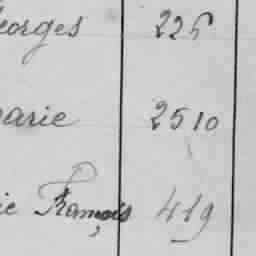 eorges 225
arie 2510
ie François 419